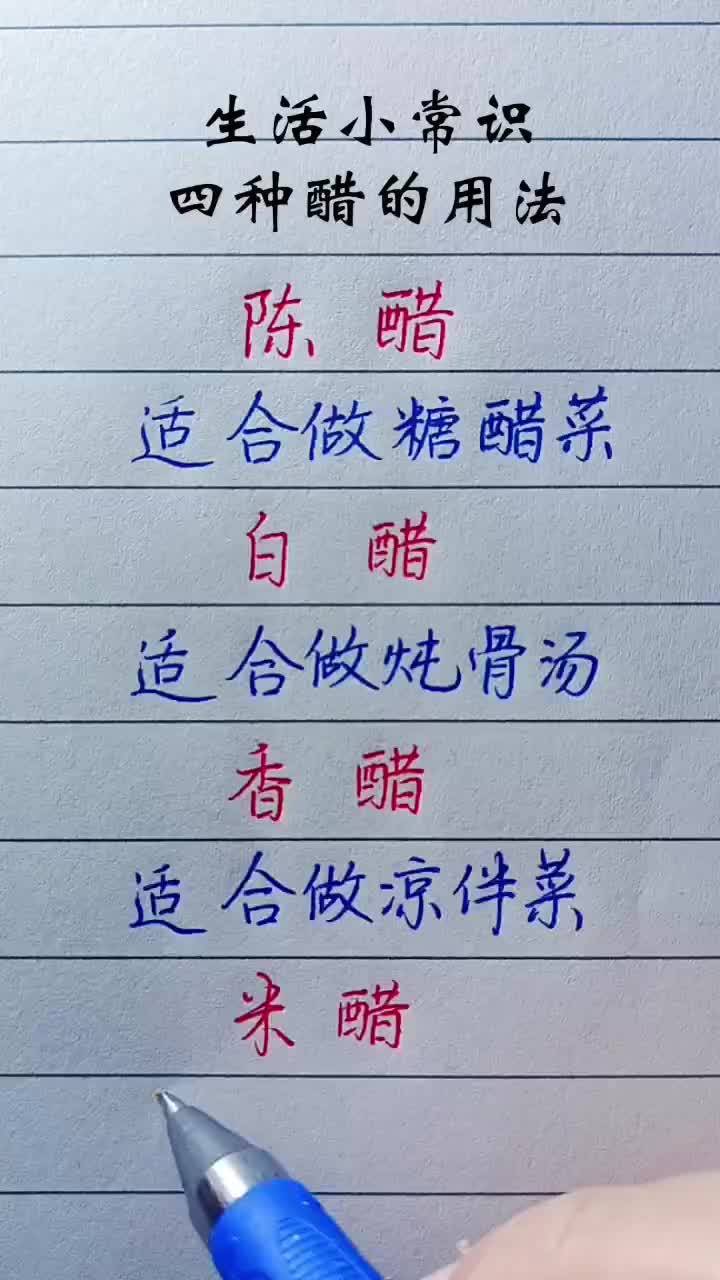 生活小常识
四种醋的用法
陈醋
适合做糖醋菜
白醋
适合做炖骨汤
香醋
适合做凉伴菜
米醋